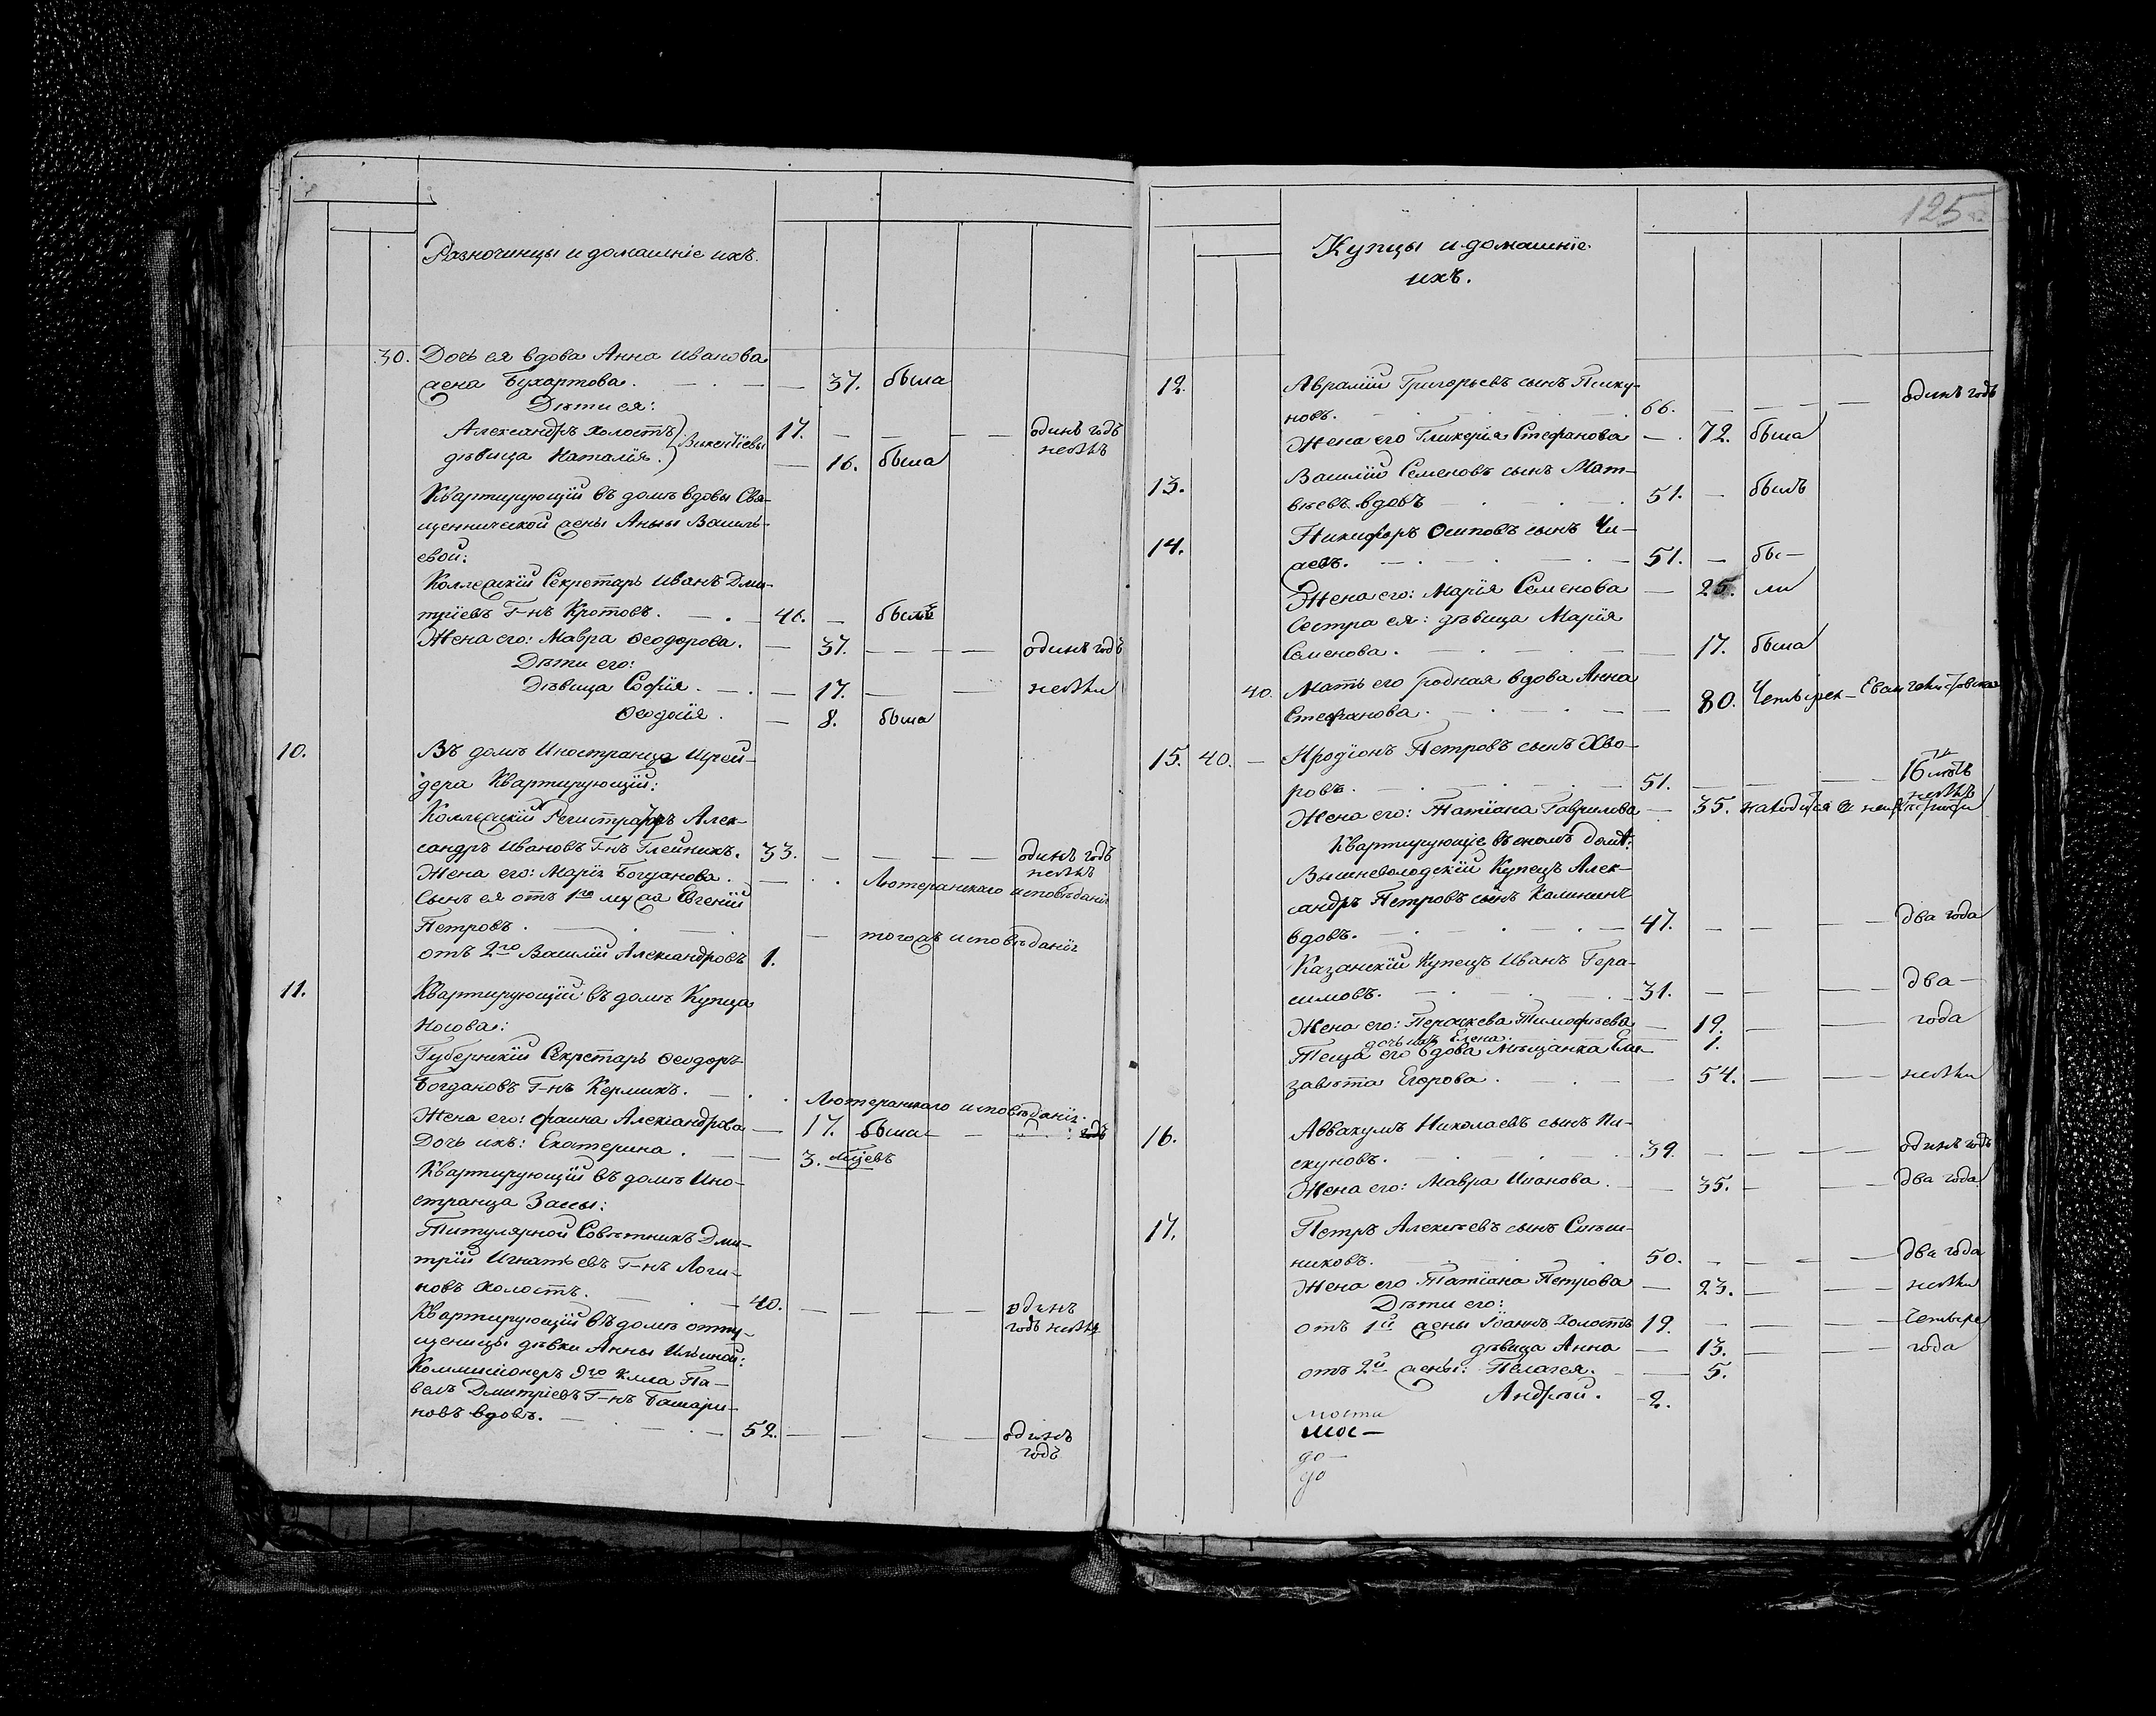 Разночинцы и домашніе ихъ.
30. Дочь ея вдова Анна Иванова
жена Бухартова. — 37. была
Дѣти ея:
Александръ холостъ Викентіевы 17. — — — — одинъ годъ
дѣвица Наталія. — 16. была небытъ
Квартирующій въ домѣ вдовы Свя-
щеннической жены Анны Василь-
евой:
Коллежскій Секретарь Иванъ Дми-
тріевъ Г-нъ Кротовъ. — 46. — былъ
Жена его: Мавра Ѳеодорова. — 37. — — — одинъ годъ
Дѣти его:
Дѣвица Софія. — 17. — —
Ѳеодосія. — 8. была
10. Въ домѣ Иностранца Шрей-
дера Квартирующій:
Коллежскій Регистраторъ Алек-
сандръ Ивановъ Г-нъ Глейникъ. 33. — — — — одинъ годъ
Жена его: Марія Богданова. — Лютеранскаго исповѣданія
Сынъ ея отъ 1го мужа Евгеній
Петровъ. — тогожъ исповѣданія
отъ 2го Василій Александровъ 1.
11. Квартирующій въ домѣ Купца
Носова:
Губернскій Секретарь Ѳеодоръ
Богдановъ Г-нъ Кермикъ. — Лютеранскаго исповѣданія.
Жена его: Фаина Александрова — 17. была —
Дочь ихъ: Екатерина. — — 3. мцевъ
Квартирующій въ домѣ Ино-
странца Зассы:
Титулярной Совѣтникъ Дми-
трій Игнатьевъ Г-нъ Логи-
новъ холостъ. — 40. — — — — одинъ
годъ
Квартирующій въ домѣ отпу-
щеницы дѣвки Анны Ильиной:
Коммисіонеръ 9го класа Па-
велъ Дмитріевъ Г-нъ Башари-
новъ вдовъ. — 52. — — — — одинъ
годъ
125
Купцы и домашніе
ихъ.
12. Аврамій Григорьевъ сынъ Писку-
новъ. 66. — — — — одинъ годъ
Жена его Гликерія Стефанова — 72. была
13. Василій Семеновъ сынъ Мат-
вѣевъ вдовъ 51. — былъ
14. Никифоръ Осиповъ сынъ Чи-
жевъ. — 51. — бы-
Жена его: Марія Семенова — 25. ли
Сестра ея: дѣвица Марія
Семенова. — 17. была
40. Мать его родная вдова Анна
Стефанова. — 80.
15. 40. — Иродіонъ Петровъ сынъ Хво-
ровъ. 51. — — — 16ть лѣтъ
Жена его: Татіана Гаврилова — 35. находится
Квартирующіе въ ономъ домѣ:
Вышневолодскій Купецъ Алек-
сандръ Петровъ сынъ Калининъ
вдовъ. — 47. — — — — два года
Казанскій Купецъ Иванъ Гера-
симовъ. — 31. — — — — два —
Жена его: Параскева Тимофѣева — 19. — — года
дочь ихъ Елена. 1.
Теща его вдова Мѣщанка Ели-
завѣта Егорова. — 54. — — —
16. Аввакумъ Николаевъ сынъ Пи-
скуновъ. 39. — — — — одинъ годъ
Жена его: Мавра Иванова. — 35. — — — два года
17. Петръ Алексѣевъ сынъ Ситни-
никовъ. 50. — — — — два года
Жена его Татіана Петрова — 23. — — —
Дѣти его:
отъ 1й жены Іоаннъ холостъ 19. — — — — четыре
дѣвица Анна — 13. — — года
отъ 2й жены: Пелагея. — 5.
Андрей. — 2.
мости
мос-
до-
до